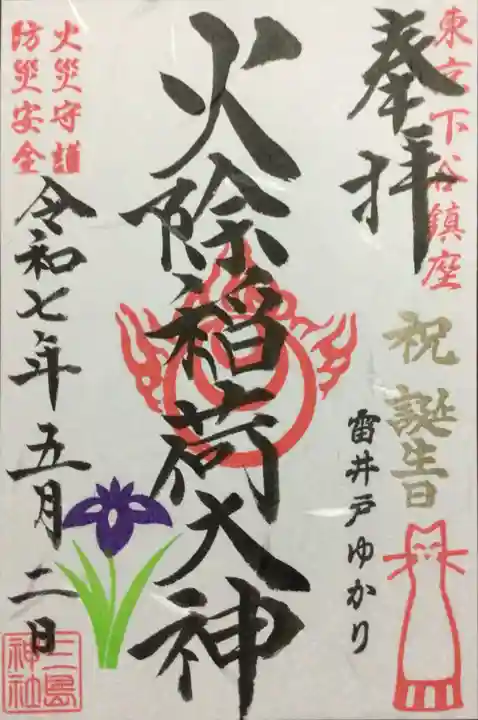 東京下谷鎮座
奉拝
祝誕生日
雷井戸ゆかり
火除稲荷大神
火災守護
防災安全
令和七年五月二日
三島
神社